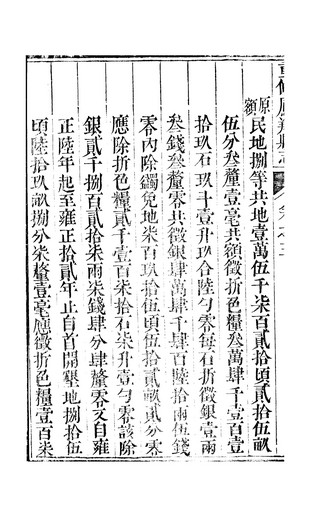 原額民地捌等共地壹萬伍千柒百貳拾頃貳拾伍畝
伍分叁釐壹毫共額徵折色糧叁萬肆千壹百壹
拾玖石玖斗壹升玖合陸勺零每石折徵銀壹兩
叁錢叁釐零共徵銀肆萬肆千肆百陸拾兩伍錢
零內除蠲免地柒百玖拾伍頃伍拾貳畝貳分零
應除折色糧貳千壹百柒拾石柒升壹勺零該除
銀貳千捌百貳拾柒兩柒錢肆分肆釐零又自雍
正陸年起至雍正拾貳年止自首開墾地捌拾伍
頃陸拾玖畝捌分柒釐壹毫應徵折色糧壹百柒